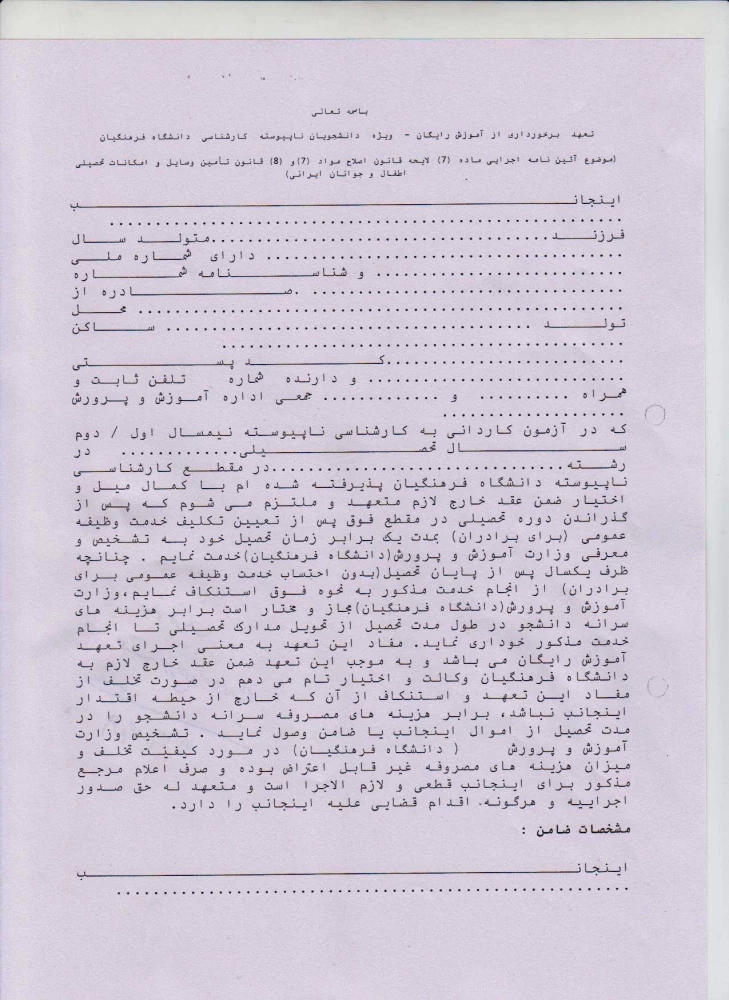 باسمه تعالی
تعهد برخورداری از آموزش رایگان - ویژه دانشجویان ناپیوسته کارشناسی دانشگاه فرهنگیان
(موضوع آئین نامه اجرایی ماده (7) لایحه قانون اصلاح مواد (7)و (8) قانون تأمین وسایل و امکانات تحصیلی
اطفال و جوانان ایرانی)
اینجانـــــــــــــــــــــــب
........................................................
فرزنــد....................................متولــد ســال
....................................... دارای شمــاره ملــی
........................... و شناســـــنامه شمـــــاره
.................................. .صــــــادره از
..................................................... محــل
تولــــد ........................................ ســـاکن
............................................
..........................کــــــد پســـــــتی
............................ و دارنده شماره تلفن ثابت و
همراه .......... و ............. جمعی اداره آموزش و پرورش
....................
که در آزمون کاردانی به کارشناسی ناپیوسته نیمسال اول / دوم
ســـــــال تحصـــــــیلی............. در
رشــته................................در مقطـع کارشناســی
ناپیوسته دانشگاه فرهنگیان پذیرفته شده ام بـا کمـال میـل و
اختیار ضمن عقد خارج لازم متعهـد و ملتـزم می شوم کـه پـس از
گذراندن دوره تحصیلی در مقطع فوق پس از تعیین تکلیف خدمت وظیفه
عمومی (برای برادران) بمدت یک برابر زمان تحصیل خود به تشخیص و
معرفی وزارت آموزش و پرورش(دانشگاه فرهنگیان)خدمت نمایم . چنانچه
ظرف یکسال پس از پایان تحصیل(بدون احتساب خدمت وظیفه عمومی بـرای
برادران) از انجام خدمت مذکور به نحوه فـوق استنکـاف نمـایم،وزارت
آموزش و پرورش(دانشگاه فرهنگیان)مجاز و مختار است برابر هزینه های
سرانه دانشجو در طول مدت تحصیل از تحویل مدارک تحصـیلی تـا انجـام
خدمت مذکور خوداری نماید. مفاد این تعهد به معنـی اجرای تعهـد
آموزش رایگان می باشد و به موجب این تعهد ضمن عقد خارج لازم به
دانشگاه فرهنگیان وکالت و اختیار تام می دهم در صورت تخلـف از
مفـاد ایـن تعهـد و استنکاف از آن کـه خـارج از حیطه اقتـدار
اینجانب نباشد، برابر هزینه های مصـروفه سـرانه دانشـجو را در
مدت تحصیل از اموال اینجانب یا ضامن وصول نمایـد . تشخیص وزارت
آموزش و پرورش ( دانشگاه فرهنگیـان) در مـورد کیفیـت تخلـف و
میزان هزینه های مصروفه غیر قابل اعتراض بوده و صرف اعلام مرجـع
مذکور برای اینجانب قطعی و لازم الاجرا است و متعهد له حق صدور
اجراییه و هرگونه. اقدام قضایی علیه اینجانب را دارد.
مشخصات ضامن :
اینجانـــــــــــــــــــــــب
........................................................